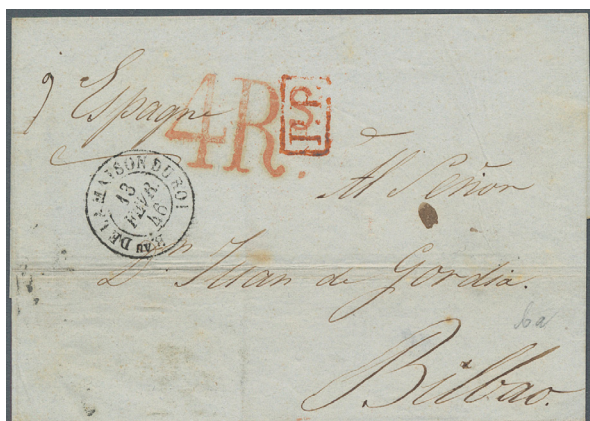 Espagne
4R.
P.S.P.
Bau DE LA MAISON DU ROI
13
FEVR.
46
Al Señor
Dn Juan de Gordia.
Bilbao.